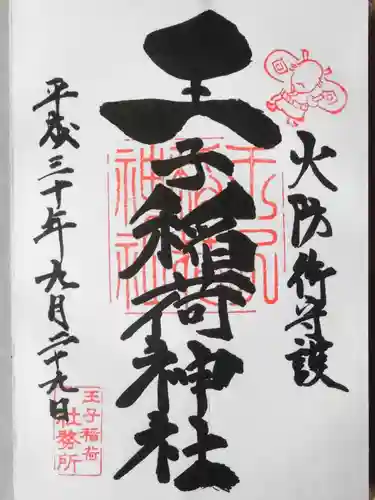 火防御守護
王子稲荷神社
平成三十年九月二十九日
王子稲荷神社
王子稲荷
社務所